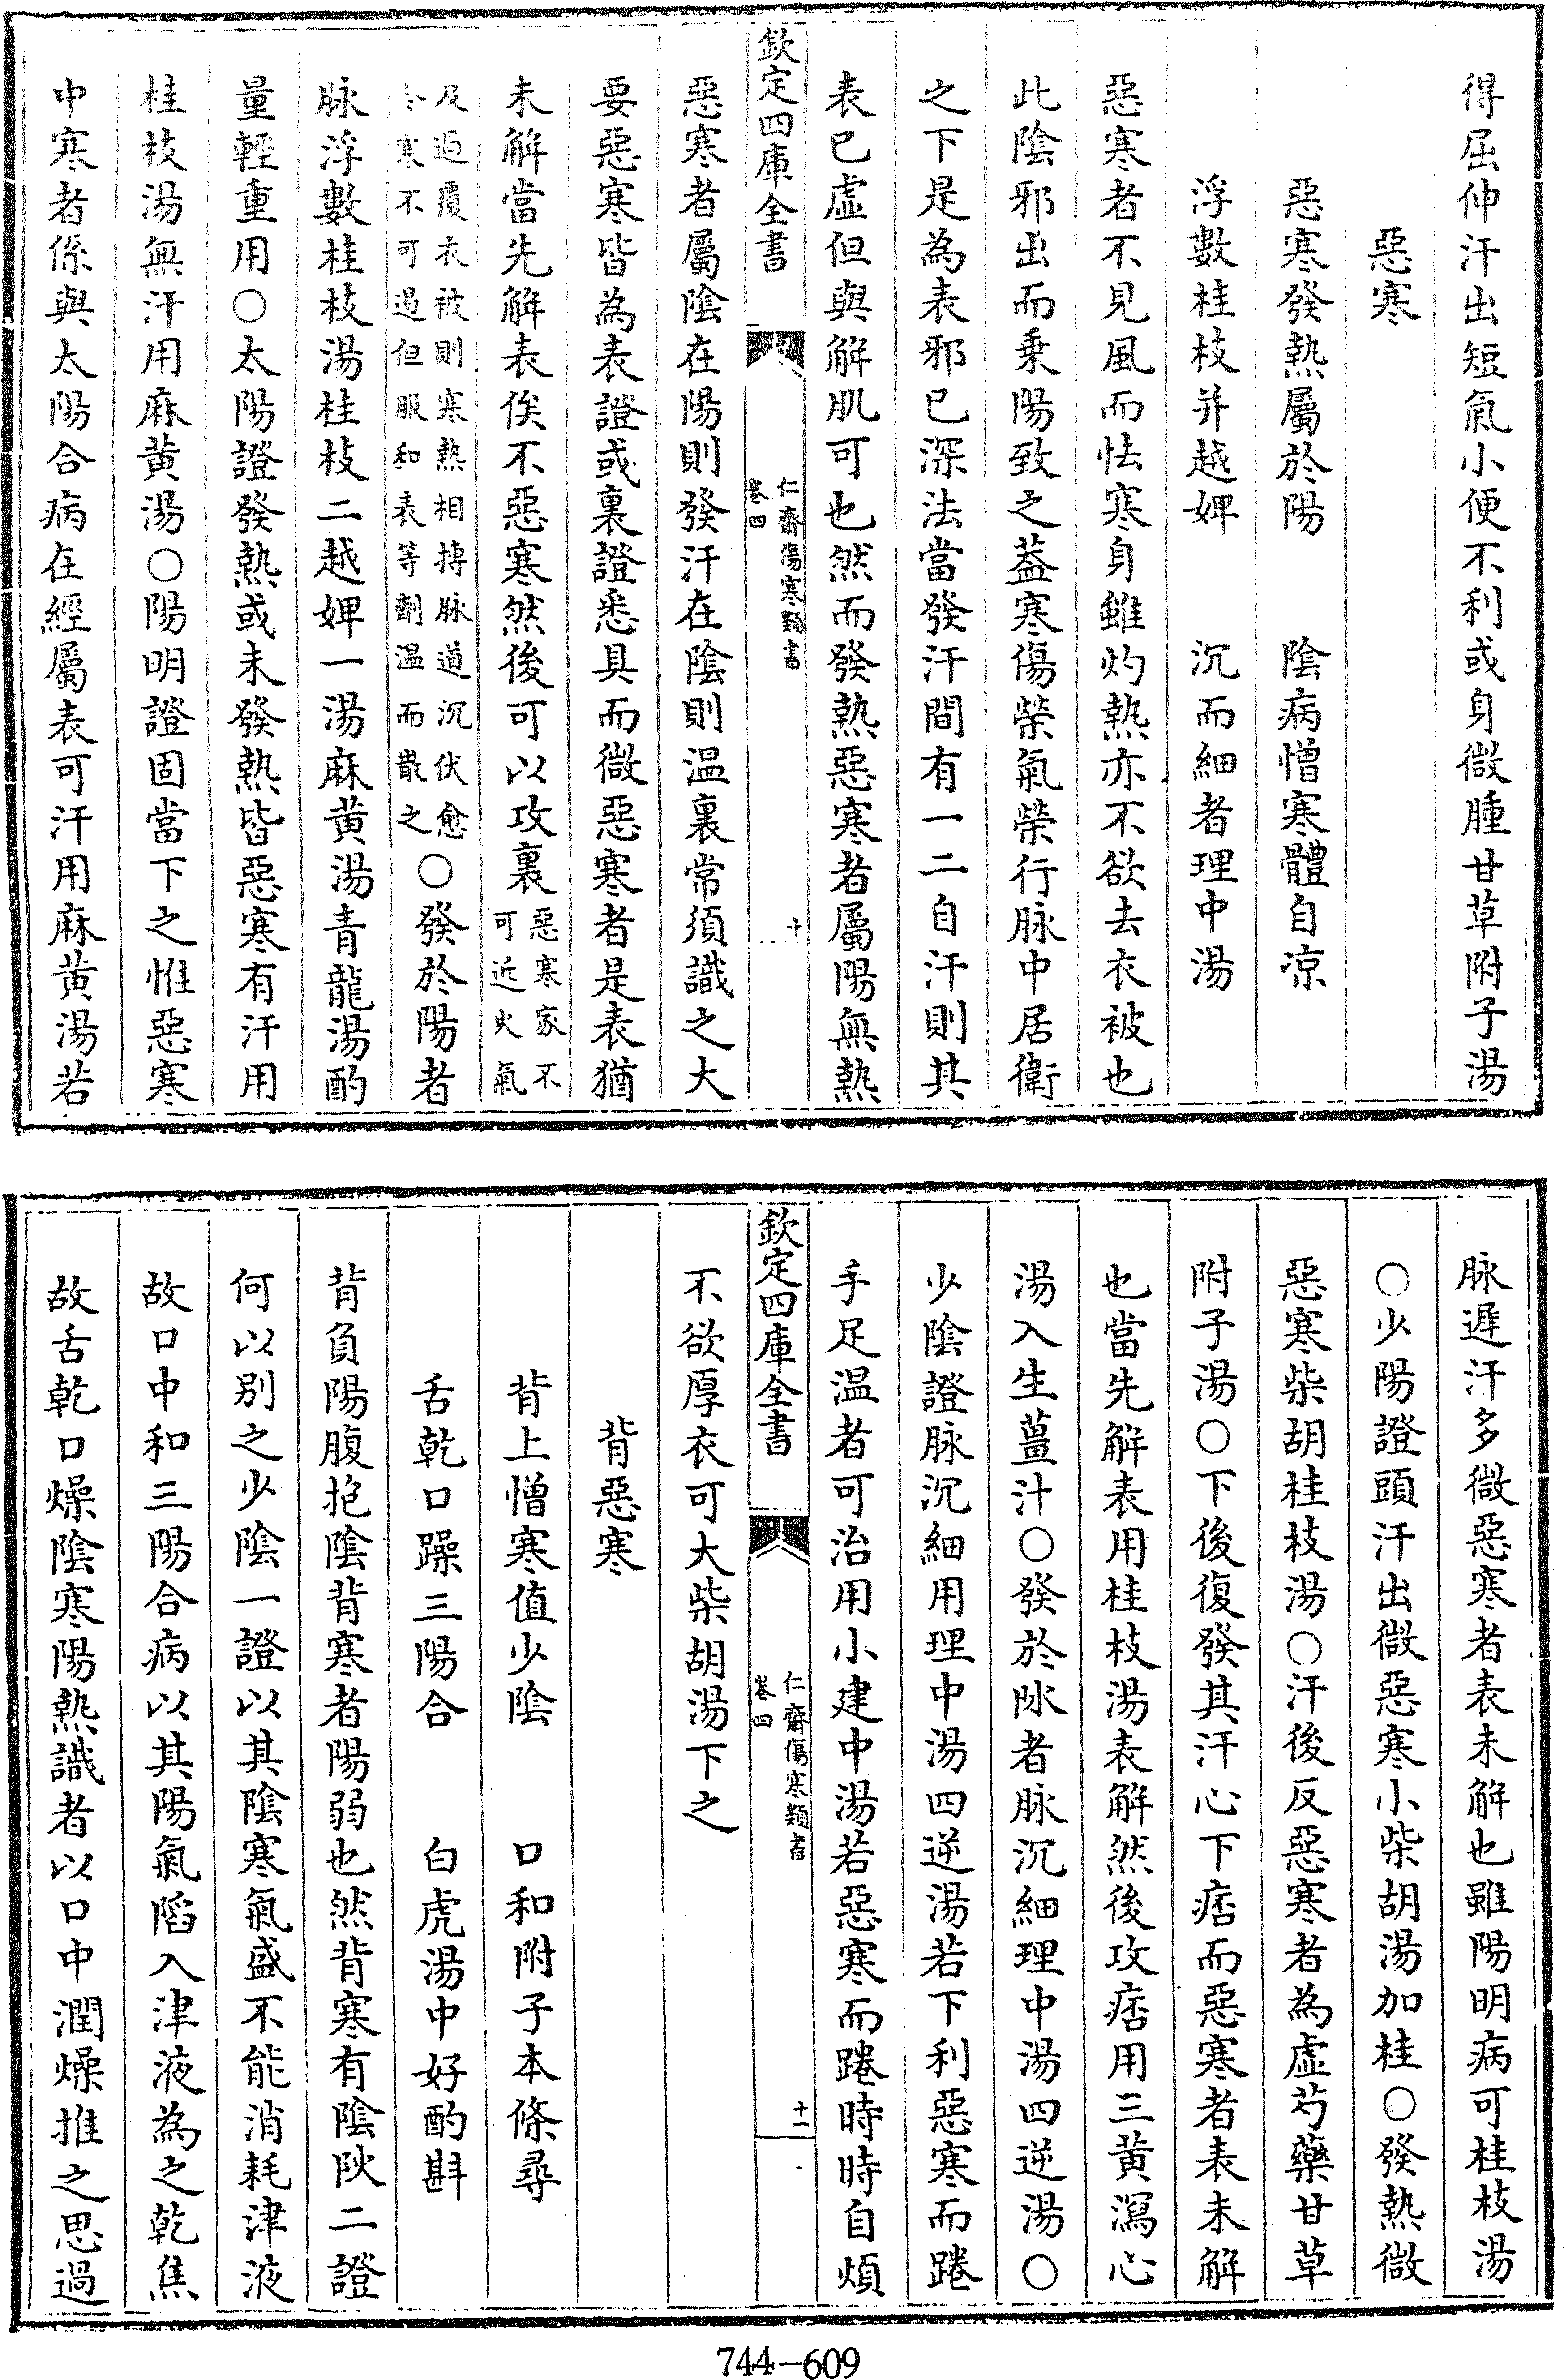 得屈伸汗出短氣小便不利或身微腫甘草附子湯
惡寒
惡寒發熱屬於陽　陰病憎寒體自凉
浮數桂枝并越婢　沉而細者理中湯
惡寒者不見風而怯寒身雖灼熱亦不欲去衣被也
此陰邪出而乗陽致之葢寒傷榮氣榮行脉中居衛
之下是為表邪已深法當發汗間有一二自汗則其
表已虚但與解肌可也然而發熱惡寒者屬陽無熱
欽定四庫全書
仁齋傷寒類書
卷四
十
惡寒者屬陰在陽則發汗在陰則温裏常須識之大
要惡寒皆為表證或裏證悉具而微惡寒者是表猶
未解當先解表俟不惡寒然後可以攻裏惡寒家不可近火氣
及過覆衣被則寒熱相搏脉道沉伏愈令寒不可遏但服和表等劑温而散之○發於陽者
脉浮數桂枝湯桂枝二越婢一湯麻黄湯青龍湯酌
量輕重用○太陽證發熱或未發熱皆惡寒有汗用
桂枝湯無汗用麻黄湯○陽明證固當下之惟惡寒
中寒者係與太陽合病在經屬表可汗用麻黄湯若
脉遲汗多微惡寒者表未解也雖陽明病可桂枝湯
○少陽證頭汗出微惡寒小柴胡湯加桂○發熱微
惡寒柴胡桂枝湯○汗後反惡寒者為虚芍藥甘草
附子湯○下後復發其汗心下痞而惡寒者表未解
也當先解表用桂枝湯表解然後攻痞用三黄瀉心
湯入生薑汁○發於陰者脉沉細理中湯四逆湯○
少陰證脉沉細用理中湯四逆湯若下利惡寒而踡
手足温者可治用小建中湯若惡寒而踡時時自煩
欽定四庫全書
仁齋傷寒類書
卷四
十一
不欲厚衣可大柴胡湯下之
背惡寒
背上憎寒值少陰　口和附子本條尋
舌乾口躁三陽合　白虎湯中好酌斟
背負陽腹抱陰背寒者陽弱也然背寒有陰陽二證
何以别之少陰一證以其陰寒氣盛不能消耗津液
故口中和三陽合病以其陽氣陷入津液為之乾焦
故舌乾口燥陰寒陽熱識者以口中潤燥推之思過
744-609